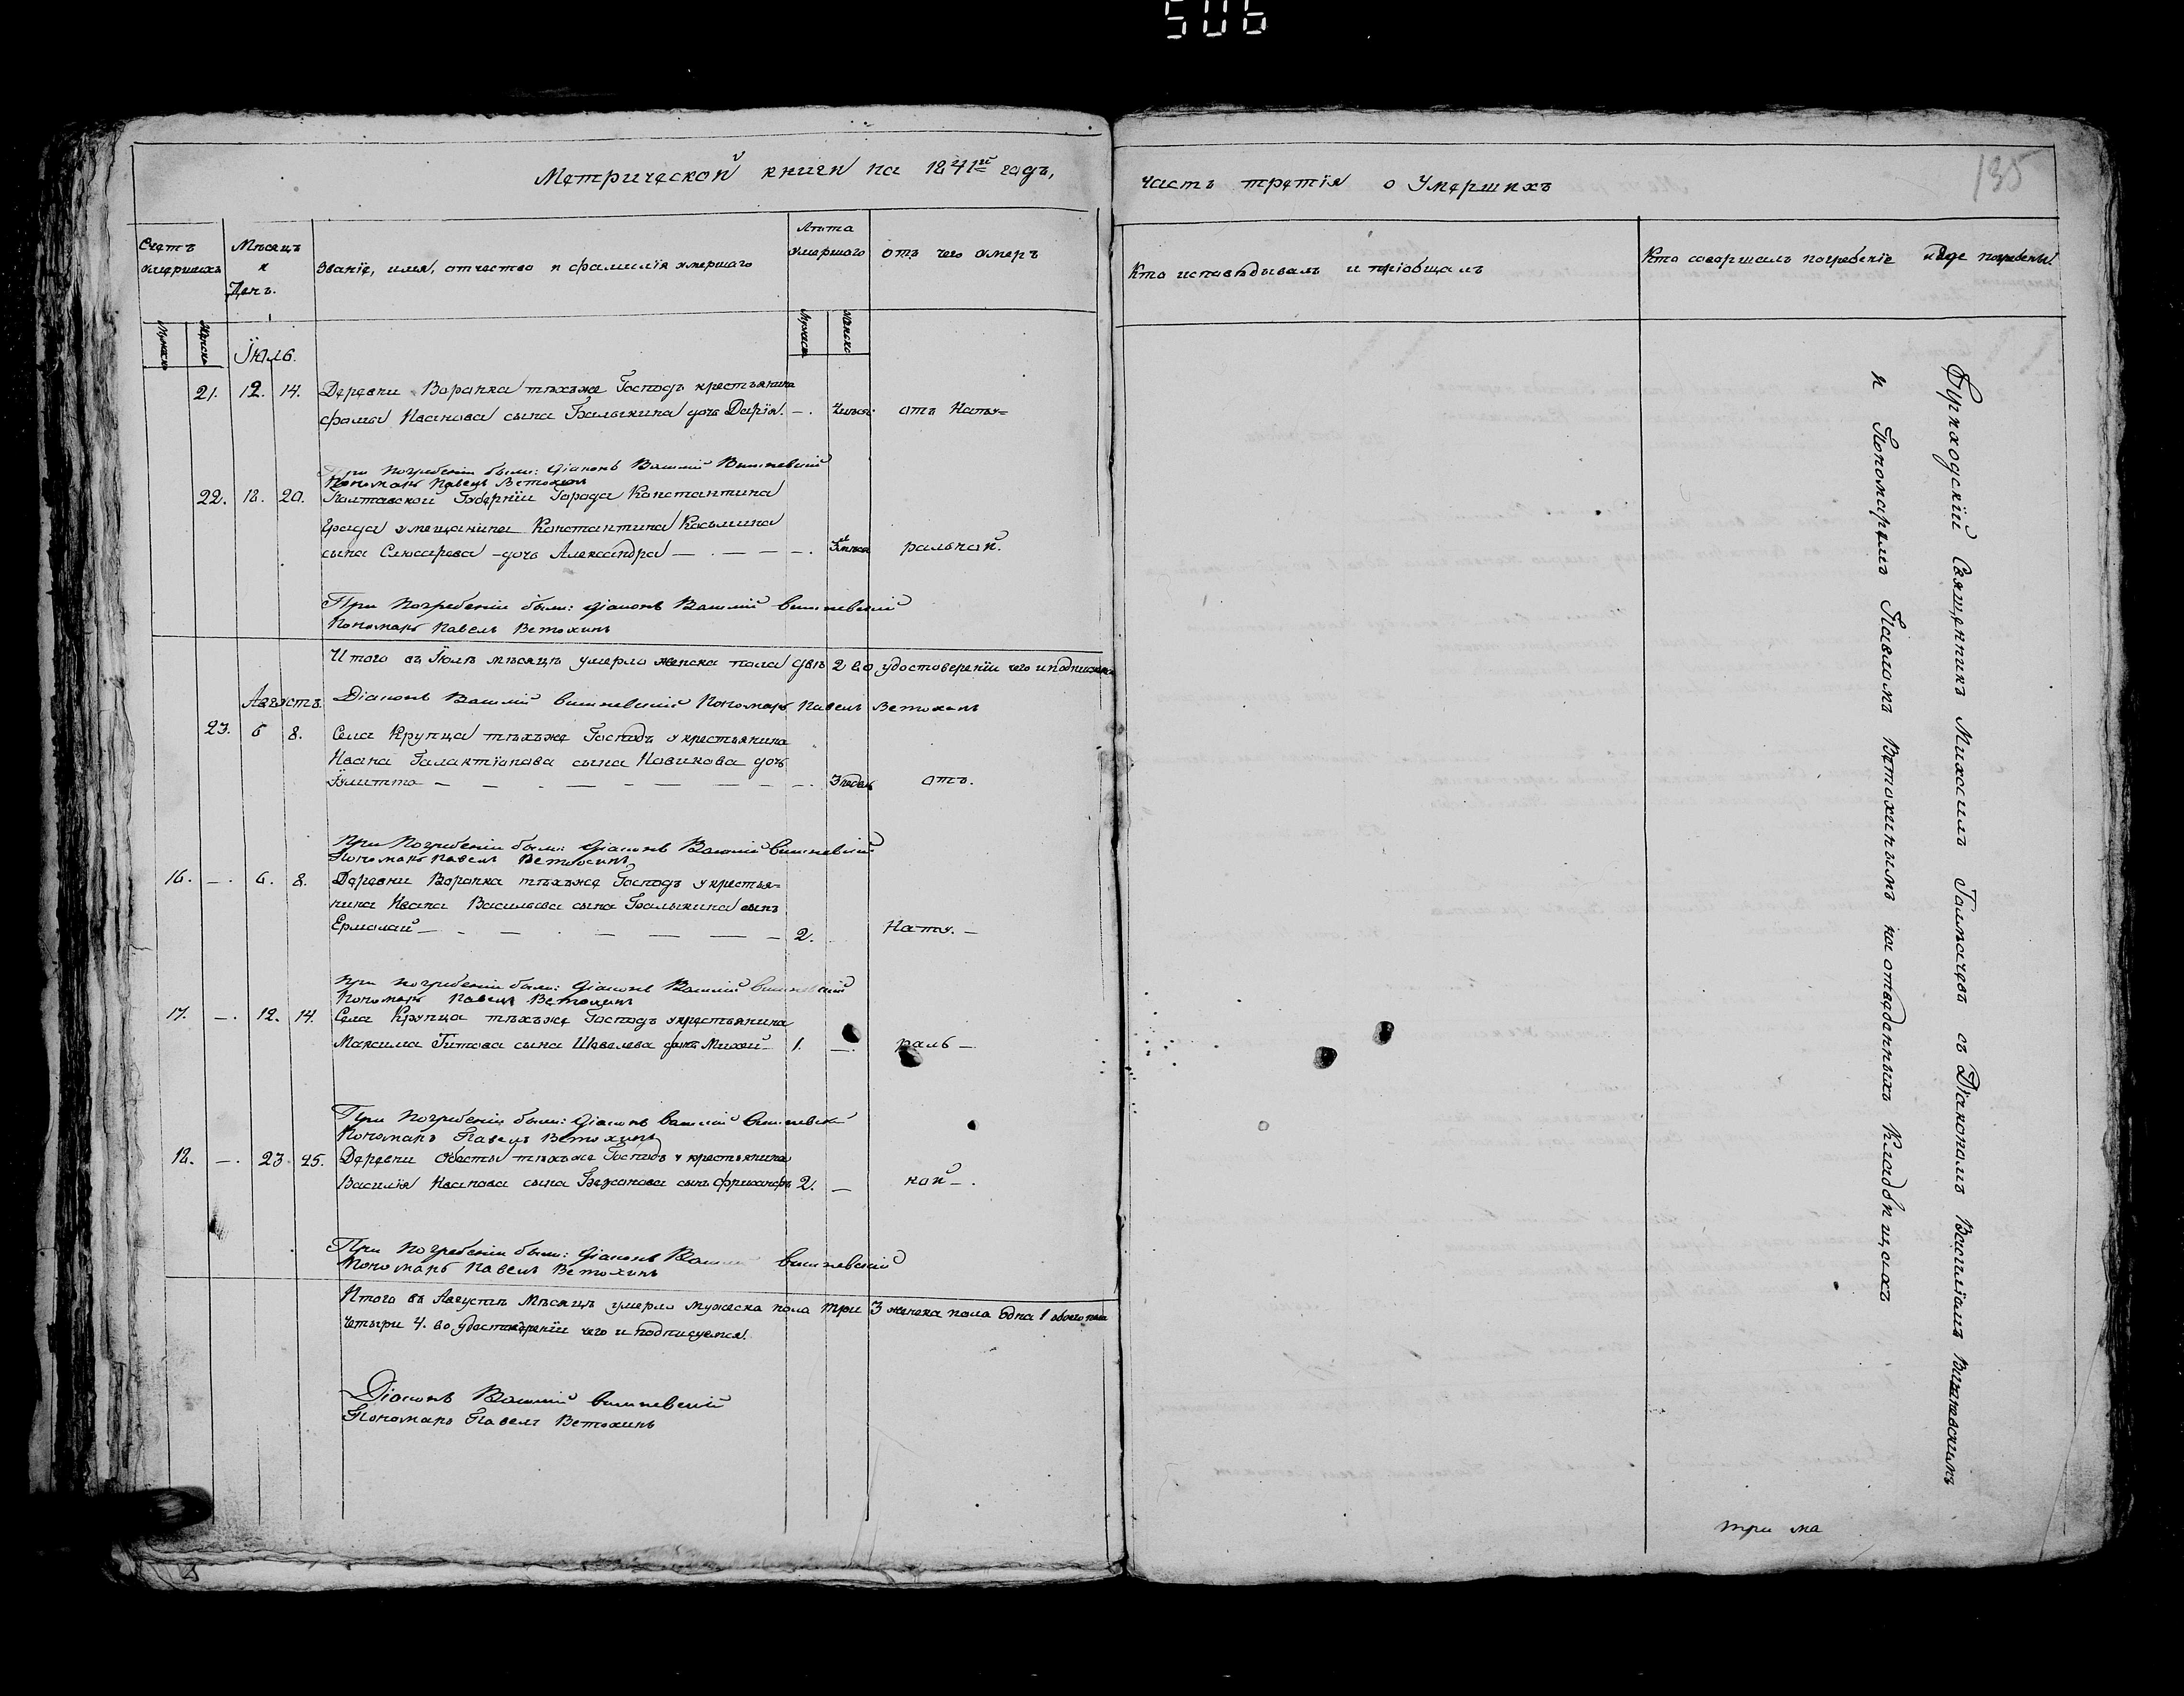 506
135
Метрической книги на 1841й годъ,
часть третія о Умершихъ
Счетъ умершихъ
Мѣсяцъ и День.
Званіе, имя, отчество и фамилія умершаго
Лѣта умершаго
отъ чего умеръ
Кто исповѣдывалъ и пріобщалъ
Кто совершалъ погребеніе и где погребены
Мужска
Женска
Мужска
Женска
Іюль.
21. 12. 14. Деревни Воронка тѣхъже Господъ крестьянина
Фомы Иванова сына Балыкина дочь Дарія. —. отъ Нату=
При погребеніи были: Діаконъ Василій Вишневскій
Пономарь Павелъ Ветохинъ
22. 18. 20. Полтавской Губерніи Города Константина
града у мещанина Константина Косьмина
сына Слюсарева — дочь Александра — . — — —. ральной.
При Погребеніи были: діаконъ Василій Вишневскій
Пономарь Павелъ Ветохинъ
Итого въ Іюлѣ мѣсяцѣ умерло женска пола двѣ 2 во удостовереніи чего и подписуемся
Діаконъ Василій Вишневскій Пономарь Павелъ Ветохинъ
Августъ
23. 6 8. Села Крупца тѣхъже Господъ у крестьянина
Ивана Галактіонова сына Новикова дочь
Іулитта — — . — — — — — —. 3 недѣль отъ.
При Погребеніи были: Діаконъ Василій Вишневскій
Пономарь Павелъ Ветохинъ
16. —. 6. 8. Деревни Воронка тѣхъже Господъ у крестья=
нина Ивана Васильева сына Балыкина сынъ
Ермолай — . — . — — — — 2. Нату. —
При погребеніи были: Діаконъ Василій Вишневскій
Пономарь Павелъ Ветохинъ
17. —. 12. 14. Села Крупца тѣхъже Господъ у крестьянина
Максима Титова сына Шевелева сынъ 1. —. раль —
При Погребеніи были: Діаконъ Василій Вишневскій
Пономарь Павелъ Ветохинъ
18. —. 23. 25. Деревни тѣхъже Господъ у крестьянина
Василія Иванова сына сынъ 2. — ной —.
При Погребеніи были: Діаконъ Василій Вишневскій
Пономарь Павелъ Ветохинъ
Итого въ Августѣ Мѣсяцѣ умерло мужеска пола три 3 женска пола одна 1 обоего пола
четыри 4. во удостовереніи чего и подписуемся.
Діаконъ Василій Вишневскій
Пономарь Павелъ Ветохинъ
Приходскій Священникъ Михаилъ съ Діакономъ Василіемъ Вишневскимъ
и Пономаремъ Павломъ Ветохинымъ на отведенныхъ Кладбищахъ
три на